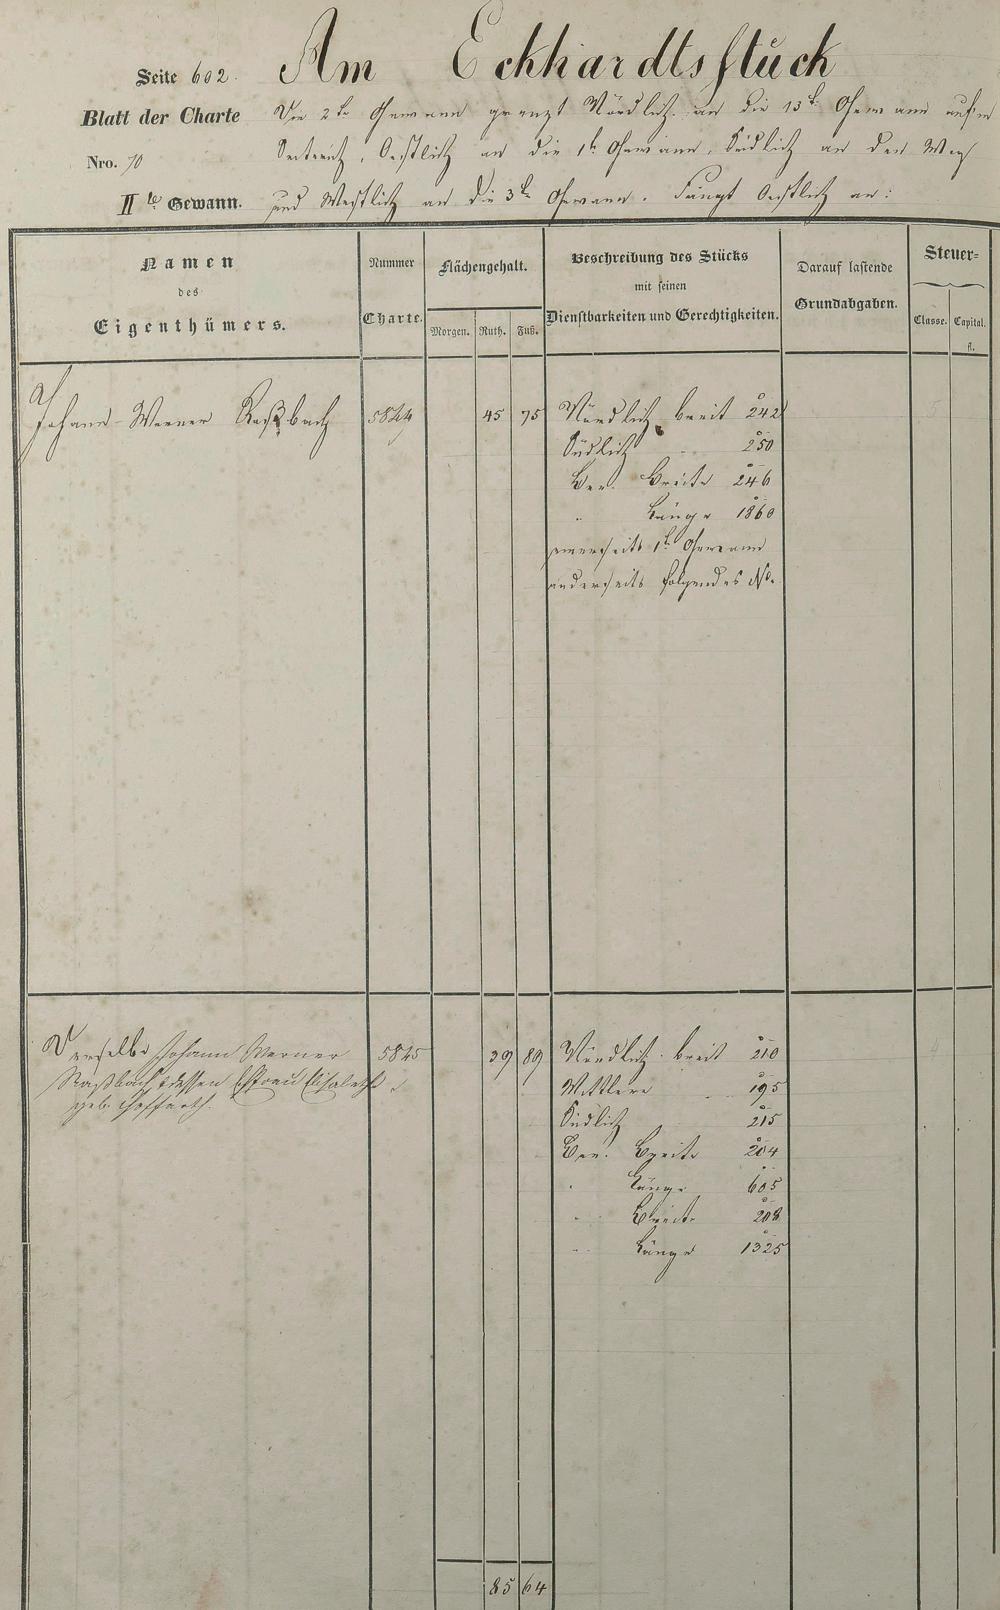 Am Eckhardtsstück
Seite 602.
Blatt der Charte
Nro. 70
II te Gewann.
Die 2te Gewann gränzt Nördlich an die 13te Gewann auf'm
Oestlich an die 1te Gewann, Südlich an den Weg
und Westlich an die 3te Gewann. Fängt Oestlich an:
Namen
des
Eigenthümers.
Nummer
Charte.
Flächengehalt.
Morgen. Ruth. Fuß.
Beschreibung des Stücks
mit seinen
Dienstbarkeiten und Gerechtigkeiten.
Darauf lastende
Grundabgaben.
Steuer-
Classe. Capital.
fl.
Johann Werner Raßbach 5844 45 75 Nördlich breit 242
Südlich 250
Ber. Breite 246
" Länge 1860
einerseits 1te Gewann
anderseits folgendes No.
Derselbe Johann Werner 5845 39 89 Nördlich breit 210
Raßbach & dessen Ehefrau Elisabeth
geb.
Mittlere 195
Südlich 215
Ber. Breite 204
" Länge 605
" Breite 208
" Länge 1325
85 64